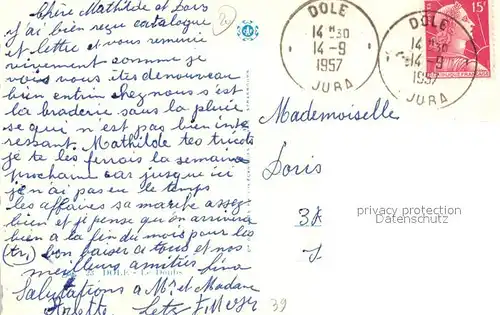 Chère Mathilde et Doris
j'ai bien reçu catalogue
et lettre et vous remerie
vivement comme je
vois vous êtes de nouveau
bien entrin chez nous s'est
la braderie sous la pluie
se qui n est pas bien inte
ressant. Mathilde tes tricots
je te les ferrais la semaine
prochaine car jusque ici
je n'ai pas eu le temps
les affaires sa marche assez
bien et je pense qu'on arrivera
bien à la fin du mois pour les
(tr,) bon baiser a tous et nos
meilleurs amitiés
25 DOLE - Le Doubs
Salutations a Mr. et Madame
DOLE
14 H 30
14 - 9
1957
JURA
DOLE
14 H 30
14 - 9
1957
JURA
15F
Mademoiselle
Doris
privacy protection
Datenschutz
39